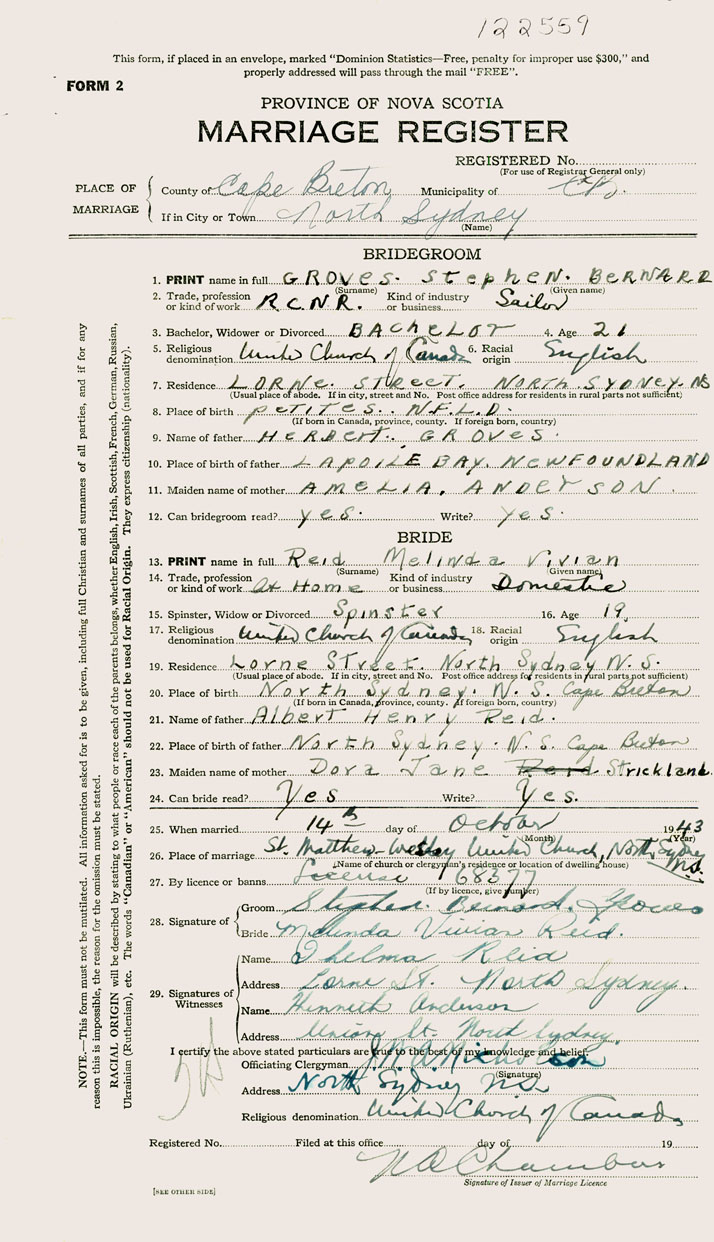 122559
This form, if placed in an envelope, marked "Dominion Statistics—Free, penalty for improper use $300," and
properly addressed will pass through the mail "FREE".
FORM 2
PROVINCE OF NOVA SCOTIA
MARRIAGE REGISTER
REGISTERED No.
(For use of Registrar General only)
PLACE OF MARRIAGE
County of Cape Breton Municipality of C.B.
If in City or Town North Sydney
(Name)
BRIDEGROOM
1. PRINT name in full GROVES. StepheN. BERNARD
(Surname) (Given name)
2. Trade, profession or kind of work R.C.N.R. Kind of industry or business Sailor
3. Bachelor, Widower or Divorced BAChELOr 4. Age 21
5. Religious denomination United Church of Canada 6. Racial origin English
7. Residence LORNe. STreeT. NORTH SYDNEY. NS
(Usual place of abode. If in city, street and No. Post office address for residents in rural parts not sufficient)
8. Place of birth peTITES. N.F.L.D.
(If born in Canada, province, county. If foreign born, country)
9. Name of father HerberT. GROVES.
10. Place of birth of father LAPOILE BAY. NEWFOUNDLAND
11. Maiden name of mother AMELIA. ANDerSON.
12. Can bridegroom read? yes. Write? yes.
BRIDE
13. PRINT name in full Reid Melinda Vivian
(Surname) (Given name)
14. Trade, profession or kind of work At Home Kind of industry or business Domestic
15. Spinster, Widow or Divorced Spinster 16. Age 19.
17. Religious denomination United Church of Canada 18. Racial origin English
19. Residence Lorne Street. North Sydney N.S.
(Usual place of abode. If in city, street and No. Post office address for residents in rural parts not sufficient)
20. Place of birth North Sydney. N.S. Cape Breton
(If born in Canada, province, county. If foreign born, country)
21. Name of father Albert Henry Reid.
22. Place of birth of father North Sydney. N.S. Cape Breton
23. Maiden name of mother Dora Jane Reid Strickland.
24. Can bride read? Yes Write? Yes.
25. When married 14th day of October 1943
(Month) (Year)
26. Place of marriage St. Matthew-Wesley United Church, North Sydney N.S.
(Name of church or clergyman's residence or location of dwelling house)
27. By licence or banns License 68577
(If by licence, give number)
28. Signature of
Groom Stephen. Bernard. Groves
Bride Melinda Vivian Reid.
29. Signatures of Witnesses
Name Thelma Reid
Address Lorne St. North Sydney.
Name Kenneth Anderson
Address Union St. North Sydney.
I certify the above stated particulars are true to the best of my knowledge and belief.
Officiating Clergyman Nicholson
(Signature)
Address North Sydney N.S.
Religious denomination United Church of Canada
Registered No. Filed at this office day of 19
Chambers
Signature of Issuer of Marriage Licence
[SEE OTHER SIDE]
NOTE.—This form must not be mutilated. All information asked for is to be given, including full Christian and surnames of all parties, and if for any
reason this is impossible, the reason for the omission must be stated.
RACIAL ORIGIN will be described by stating to what people or race each of the parents belongs, whether English, Irish, Scottish, French, German, Russian,
Ukrainian (Ruthenian), etc. The words "Canadian" or "American" should not be used for Racial Origin. They express citizenship (nationality).